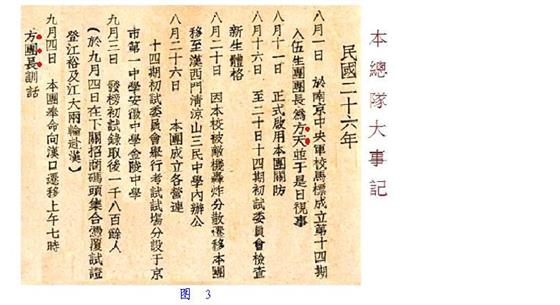 本總隊大事記
民國二十六年
八月一日　於南京中央軍校馬標成立第十四期
入伍生團團長為方天並于是日視事
八月十一日　正式啟用本團關防
八月十六日　至二十日十四期初試委員會檢查
新生體格
八月二十日　因本校被敵機轟炸分散遷移本團
移至漢西門清涼山三民中學內辦公
八月二十六日　本團成立各營連
十四期初試委員會舉行考試試場分設于京
市第一中學安徽中學金陵中學
九月三日　發榜初試錄取後一千八百餘人
(於九月四日在下關招商碼頭集合憑覆試證
登江裕及江大兩輪赴漢)
九月四日　本團奉命向漢口遷移上午七時
方團長訓話
图 3